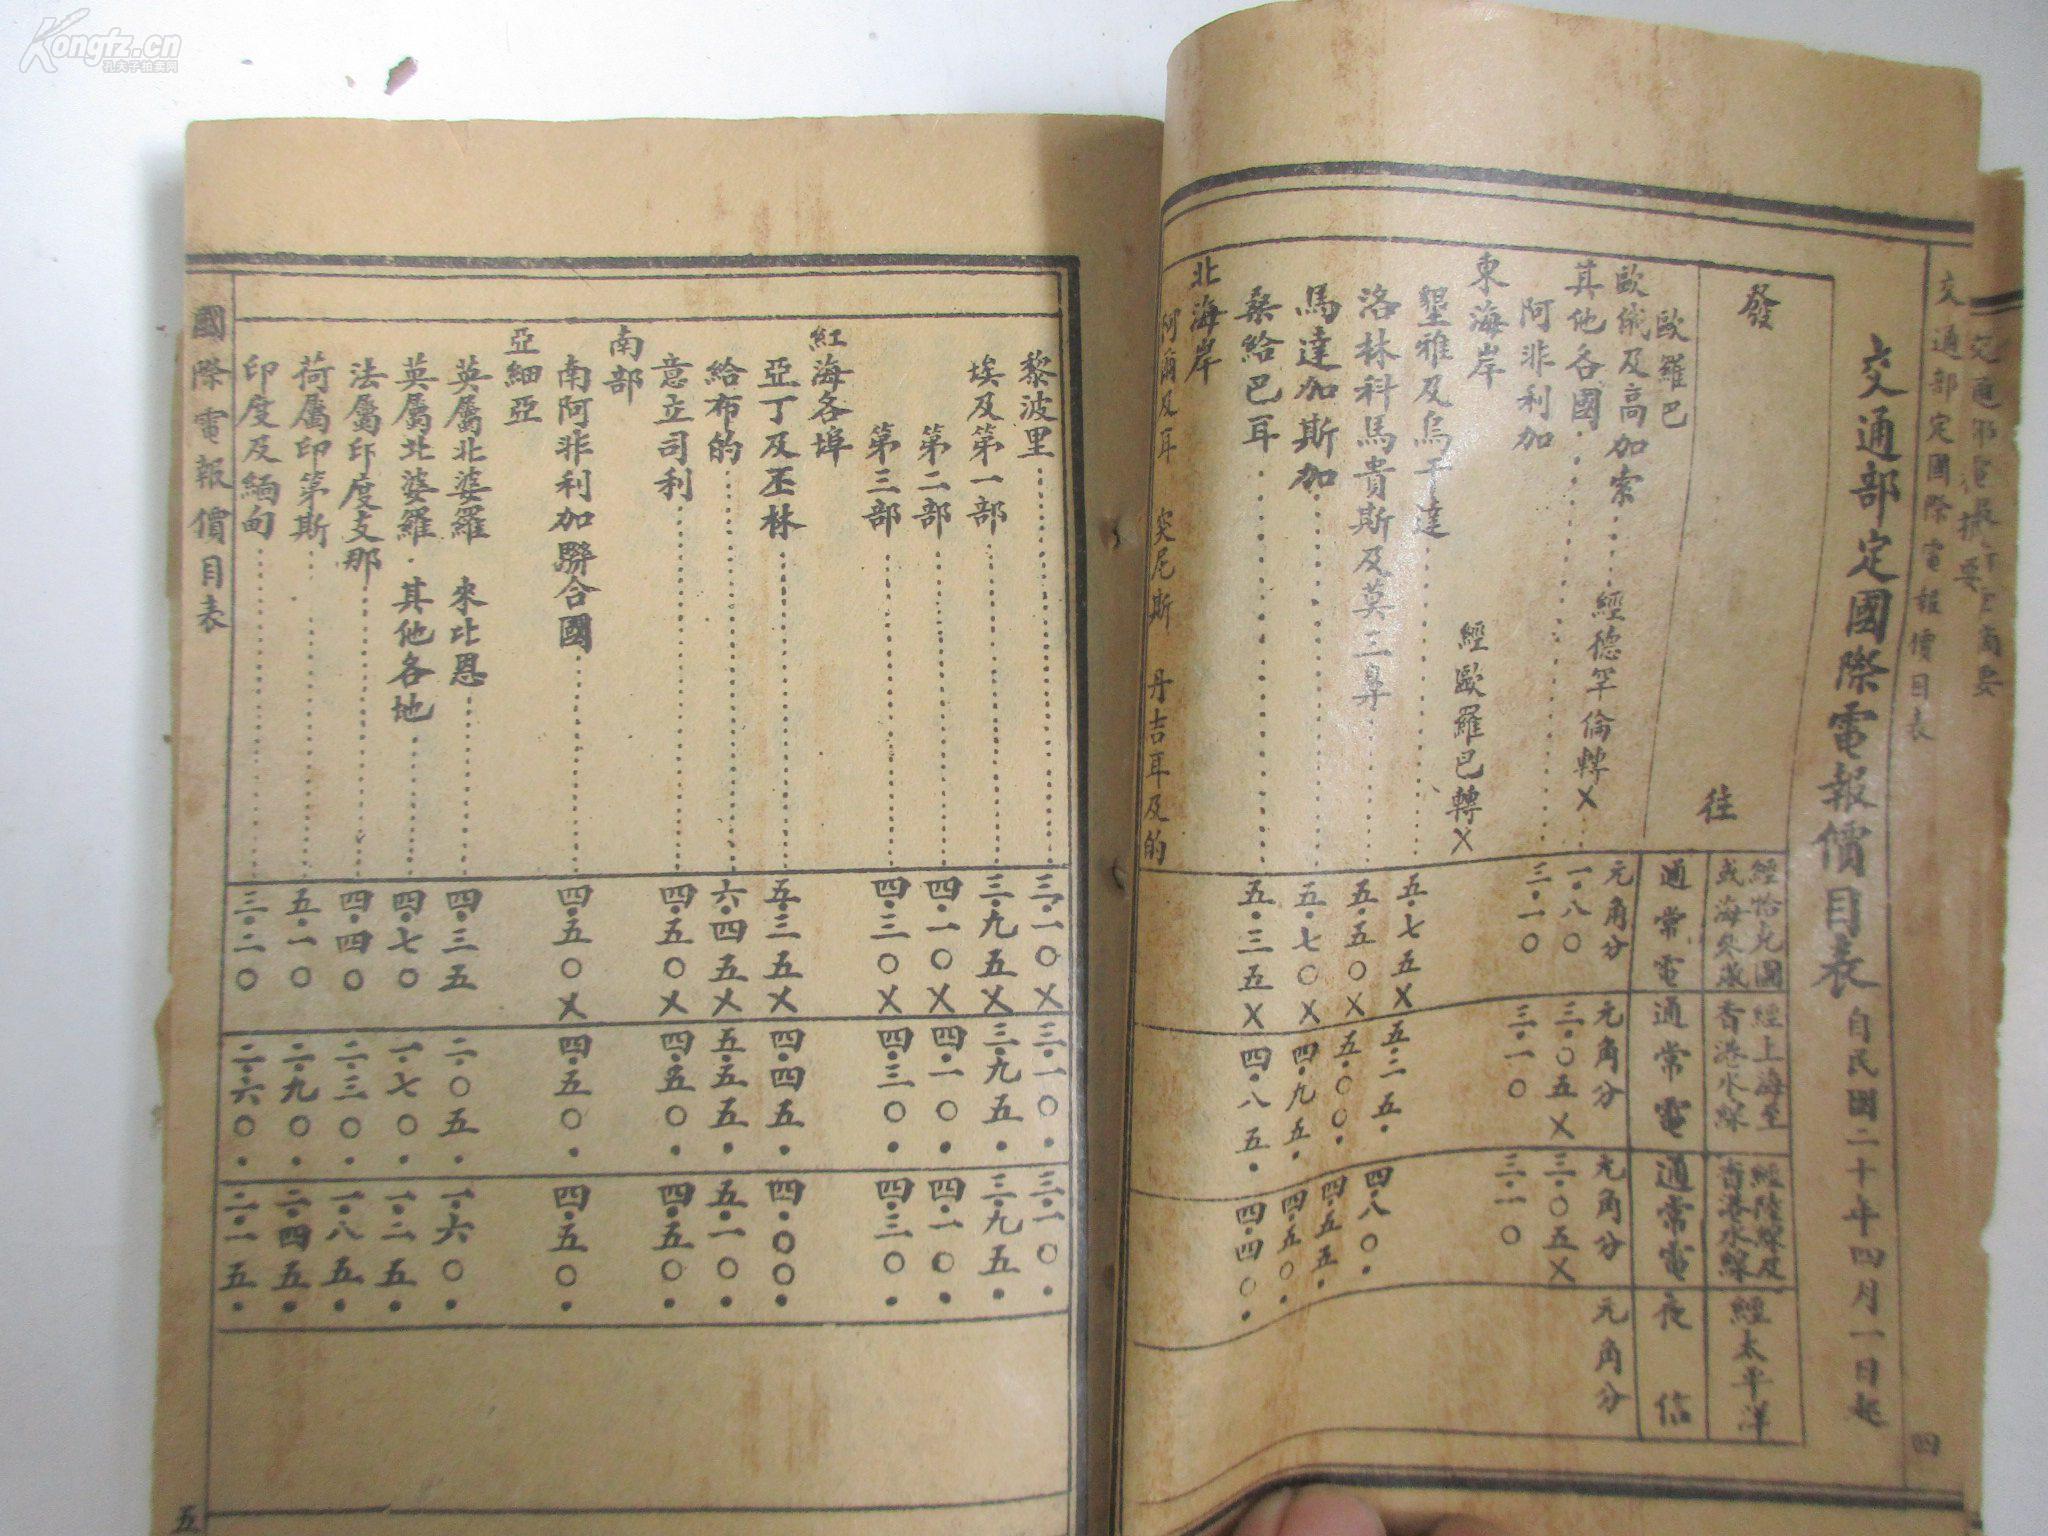 Kongfz.cn
孔夫子拍卖网
交通部定國際電報價目表
四
交通部定國際電報價目表 自民國二十年四月一日起
發 往
經恰克圖
或海參崴
經上海至
香港水線
經陸線及
香港水線
經太平洋
通常電 通常電 通常電 夜信
歐羅巴 元角分 元角分 元角分 元角分
歐俄及高加索 經德罕倫轉X 一・八〇 三・〇五X 三・〇五X
其他各國 三・一〇 三・一〇 三・一〇
阿非利加
東海岸 經歐羅巴轉X
墾雅及烏干達 五・七五X 五・二五・ 四・八〇・
洛林科馬貴斯及莫三鼻 五・五〇X 五・〇〇・ 四・五五・
馬達加斯加 五・七〇X 四・九五・ 四・五〇・
桑給巴耳 五・三五X 四・八五・ 四・四〇・
北海岸
阿爾及耳 突尼斯 丹吉耳及的
黎波里 三・一〇X 三・一〇・ 三・一〇・
埃及第一部 三・九五X 三・九五・ 三・九五・
第二部 四・一〇X 四・一〇・ 四・一〇・
第三部 四・三〇X 四・三〇・ 四・三〇・
紅海各埠
亞丁及丕林 五・三五X 四・四五・ 四・〇〇・
給布的 六・四五X 五・五五・ 五・一〇・
意立司利 四・五〇X 四・五〇・ 四・五〇・
南部
南阿非利加聯合國 四・五〇X 四・五〇・ 四・五〇・
亞細亞
英屬北婆羅 來比恩 四・三五 二・〇五・ 一・六〇・
英屬北婆羅 其他各地 四・七〇 一・七〇・ 一・二五・
法屬印度支那 四・四〇 二・三〇・ 一・八五・
荷屬印第斯 五・一〇 二・九〇・ 二・四五・
印度及緬甸 三・二〇 二・六〇・ 二・一五・
國際電報價目表
五